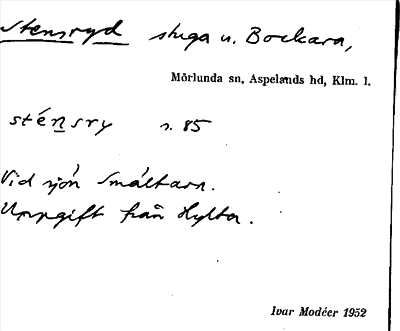 Stensryd stuga u. Bockara,
Mörlunda sn, Aspelands hd, Klm. l.
sténsry s. 85
Vid sjön Småltarn.
Uppgift från Hylta.
Ivar Modéer 1952